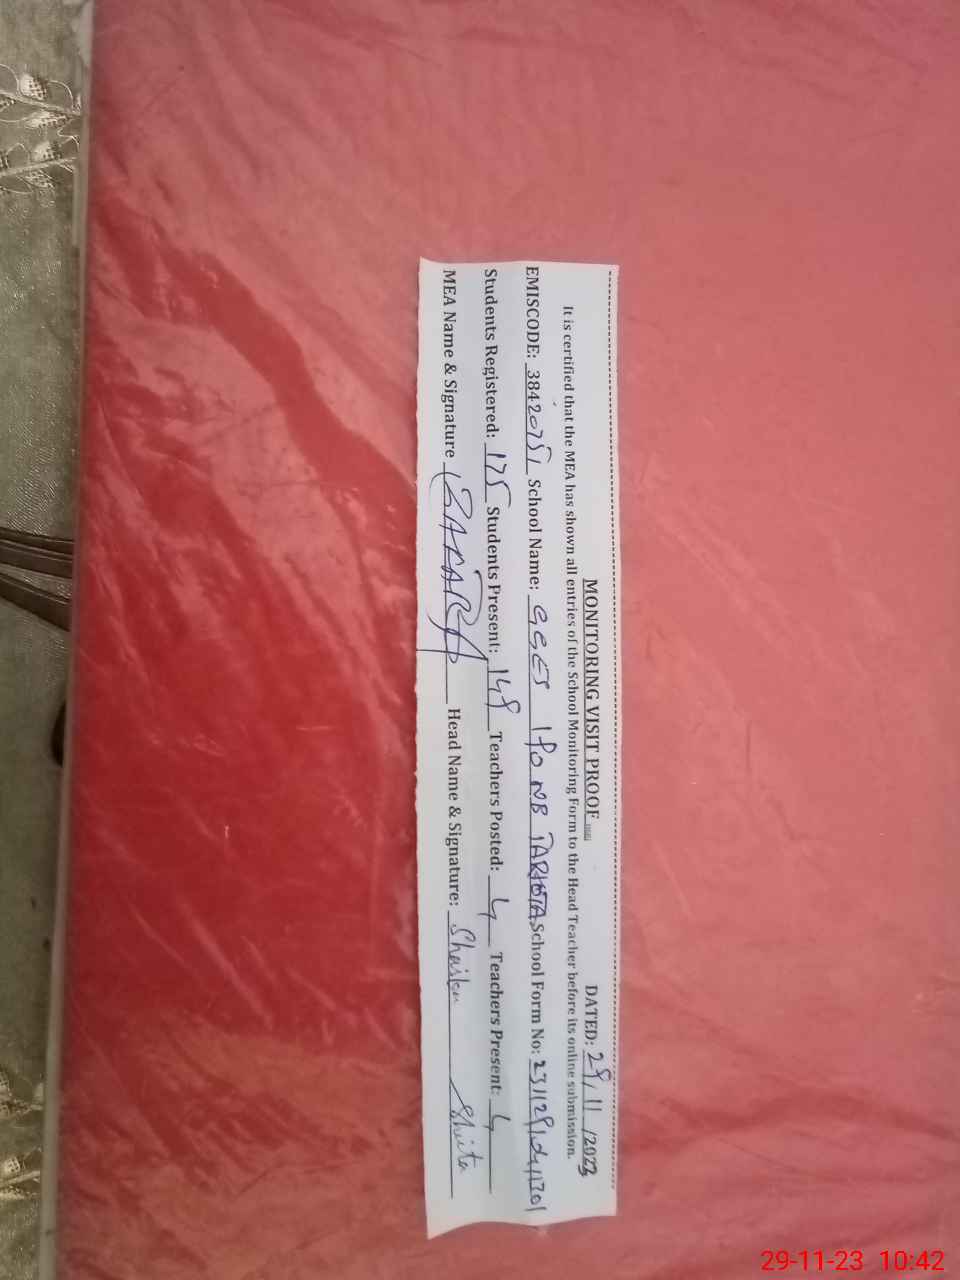 MONITORING VISIT PROOF DATED: 29/11/2023
It is certified that the MEA has shown all entries of the School Monitoring Form to the Head Teacher before its online submission.
EMISCODE: 38420751 School Name: GGES 190 NB TARKHOTA School Form No:
Students Registered: 175 Students Present: 149 Teachers Posted: 4 Teachers Present: 4
MEA Name & Signature Head Name & Signature:
29-11-23 10:42